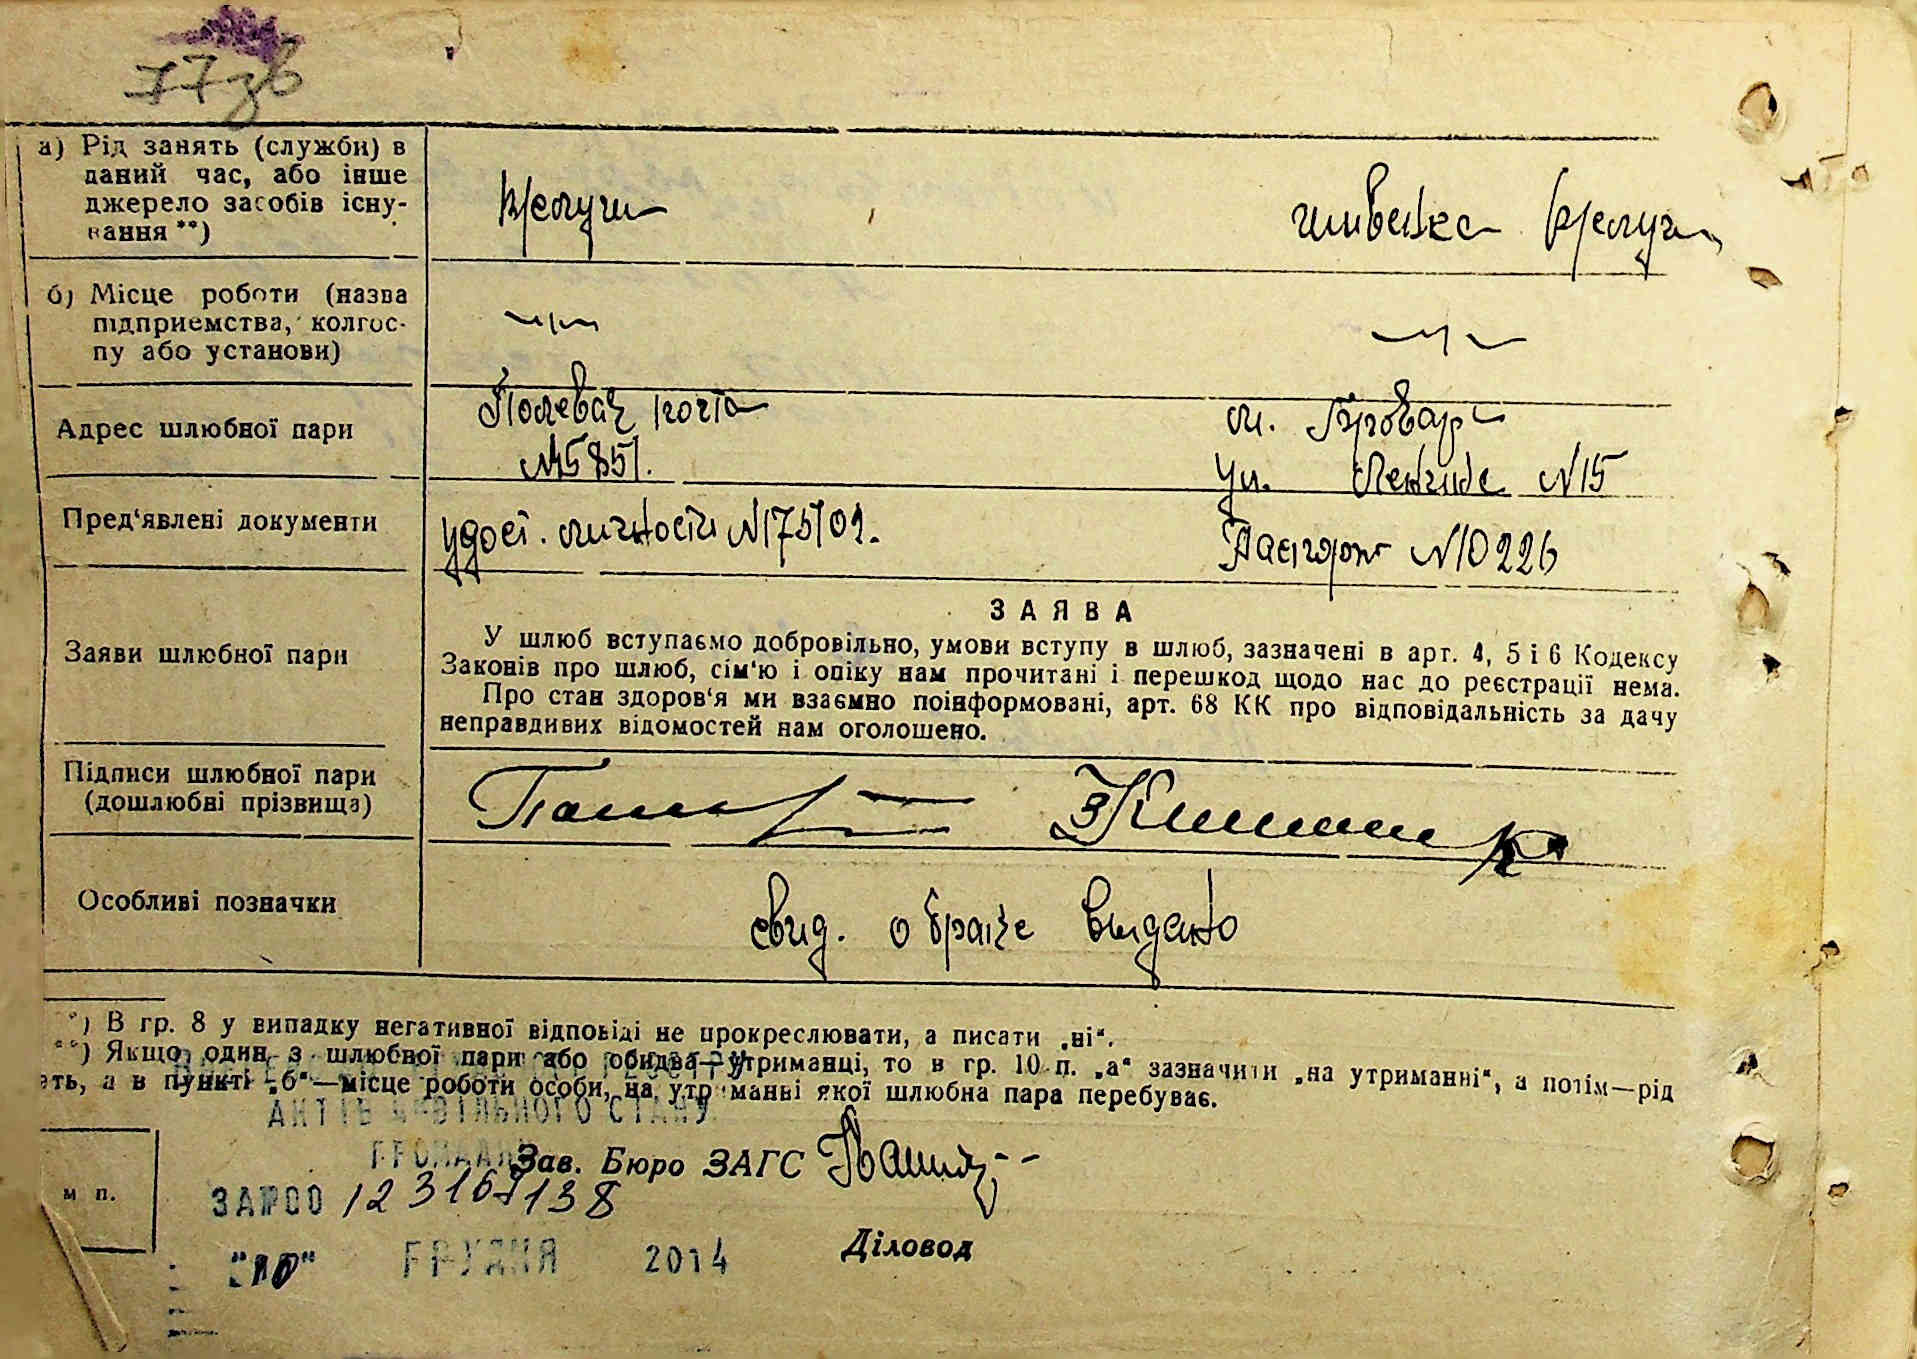 77зв
а) Рід занять (служби) в
даний час, або інше
джерело засобів існу-
вання **)
швейка
б) Місце роботи (назва
підприємства, колгос-
пу або установи)
Адрес шлюбної пари
Полевая почта
№ 5851.
м. Бровари
ул. Ленина N 15
Пред'явлені документи
удост. личности N 175702.
Паспорт N 10226
Заяви шлюбної пари
ЗАЯВА
У шлюб вступаємо добровільно, умови вступу в шлюб, зазначені в арт. 4, 5 і 6 Кодексу
Законів про шлюб, сім'ю і опіку нам прочитані і перешкод щодо нас до реєстрації нема.
Про стан здоров'я ми взаємно поінформовані, арт. 68 КК про відповідальність за дачу
неправдивих відомостей нам оголошено.
Підписи шлюбної пари
(дошлюбні прізвища)
Особливі позначки
свид. о браке видано
*) В гр. 8 у випадку негативної відповіді не прокреслювати, а писати „ні“.
**) Якщо один з шлюбної пари або обидва—утриманці, то в гр. 10 п. „а“ зазначити „на утриманні“, а потім—рід
ять, а в пункті „б“—місце роботи особи, на утриманні якої шлюбна пара перебуває.
АКТІВ ЦИВІЛЬНОГО СТАНУ
ГРОМАДЯН
Зав. Бюро ЗАГС
м п.
12 3169138
Діловод
"10" ГРУДНЯ 2014